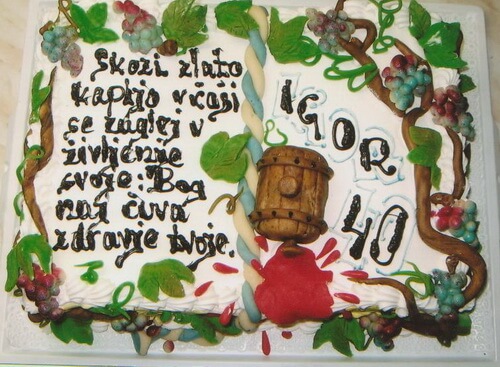 Skozi zlato
kapljo v čaši
se zaglej v
življenje
svoje. Bog
naj čuva
zdravje tvoje.
IGOR
40